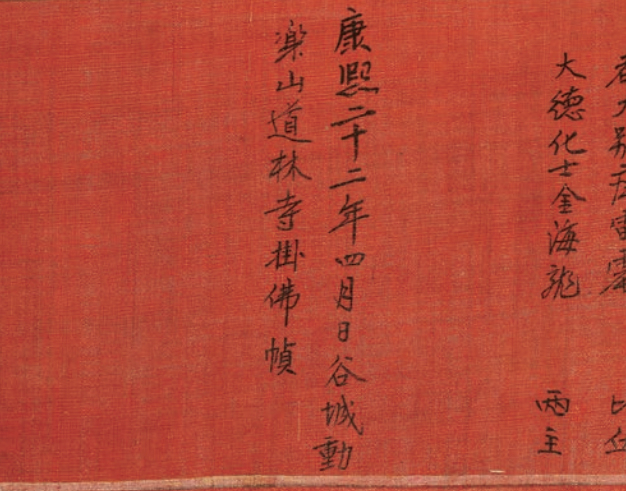 比丘
大德化士金海龍 兩主
康熙二十二年四月日谷城動
楽山道林寺掛佛幀